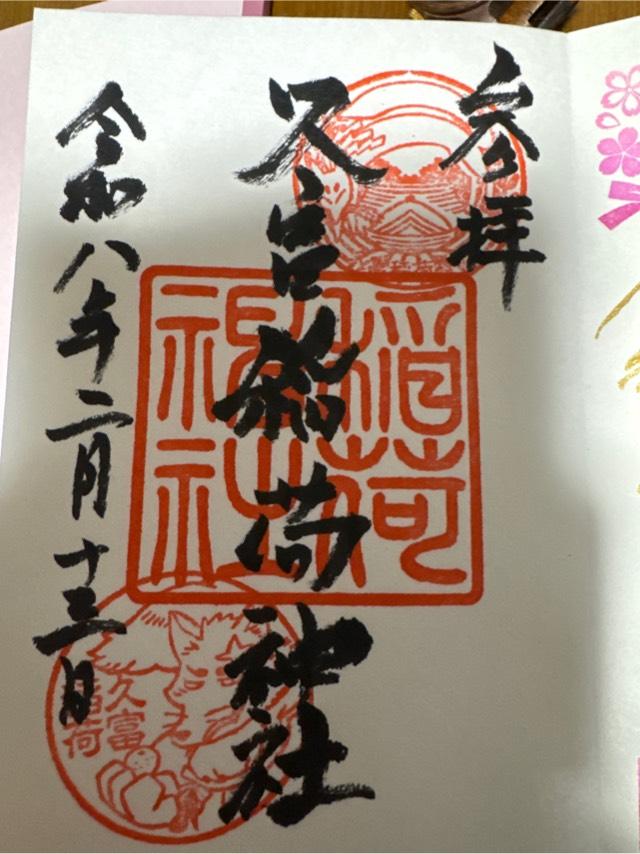 参拝
久富稲荷神社
令和八年二月十三日
稲荷
神社
久富
稲荷